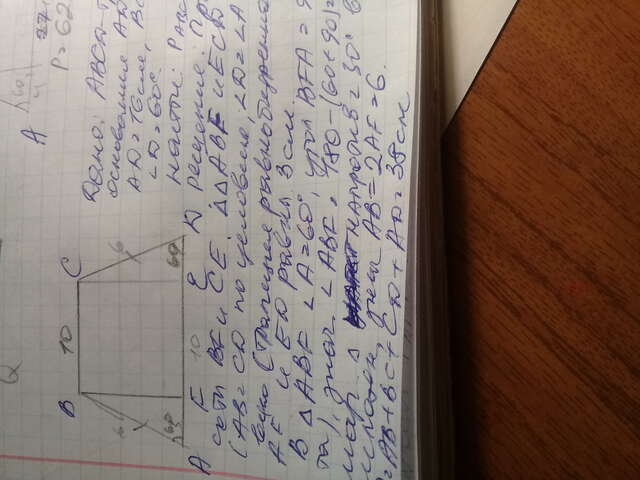 A
60
4
P = 62
B 10 C
6
6
60
60
A F 10 E D
Дано: ABCD - 
основания AD
AD = 16 см, BC
∠D = 60°.
Найти: P ABC
Решение:
соты BF и CE. △△ABF и ECD
(AB = CD по условию, ∠D = ∠A
(трапеция равнобедренна
AF и ED равны 3 см.
В △ABF ∠A = 60°, угол BFA = 9
та), знач. ∠ABF = 180 - (60 + 90) =
△ напротив = 30° в
знач AB = 2AF = 6.
= AB + BC + CD + AD = 38 см